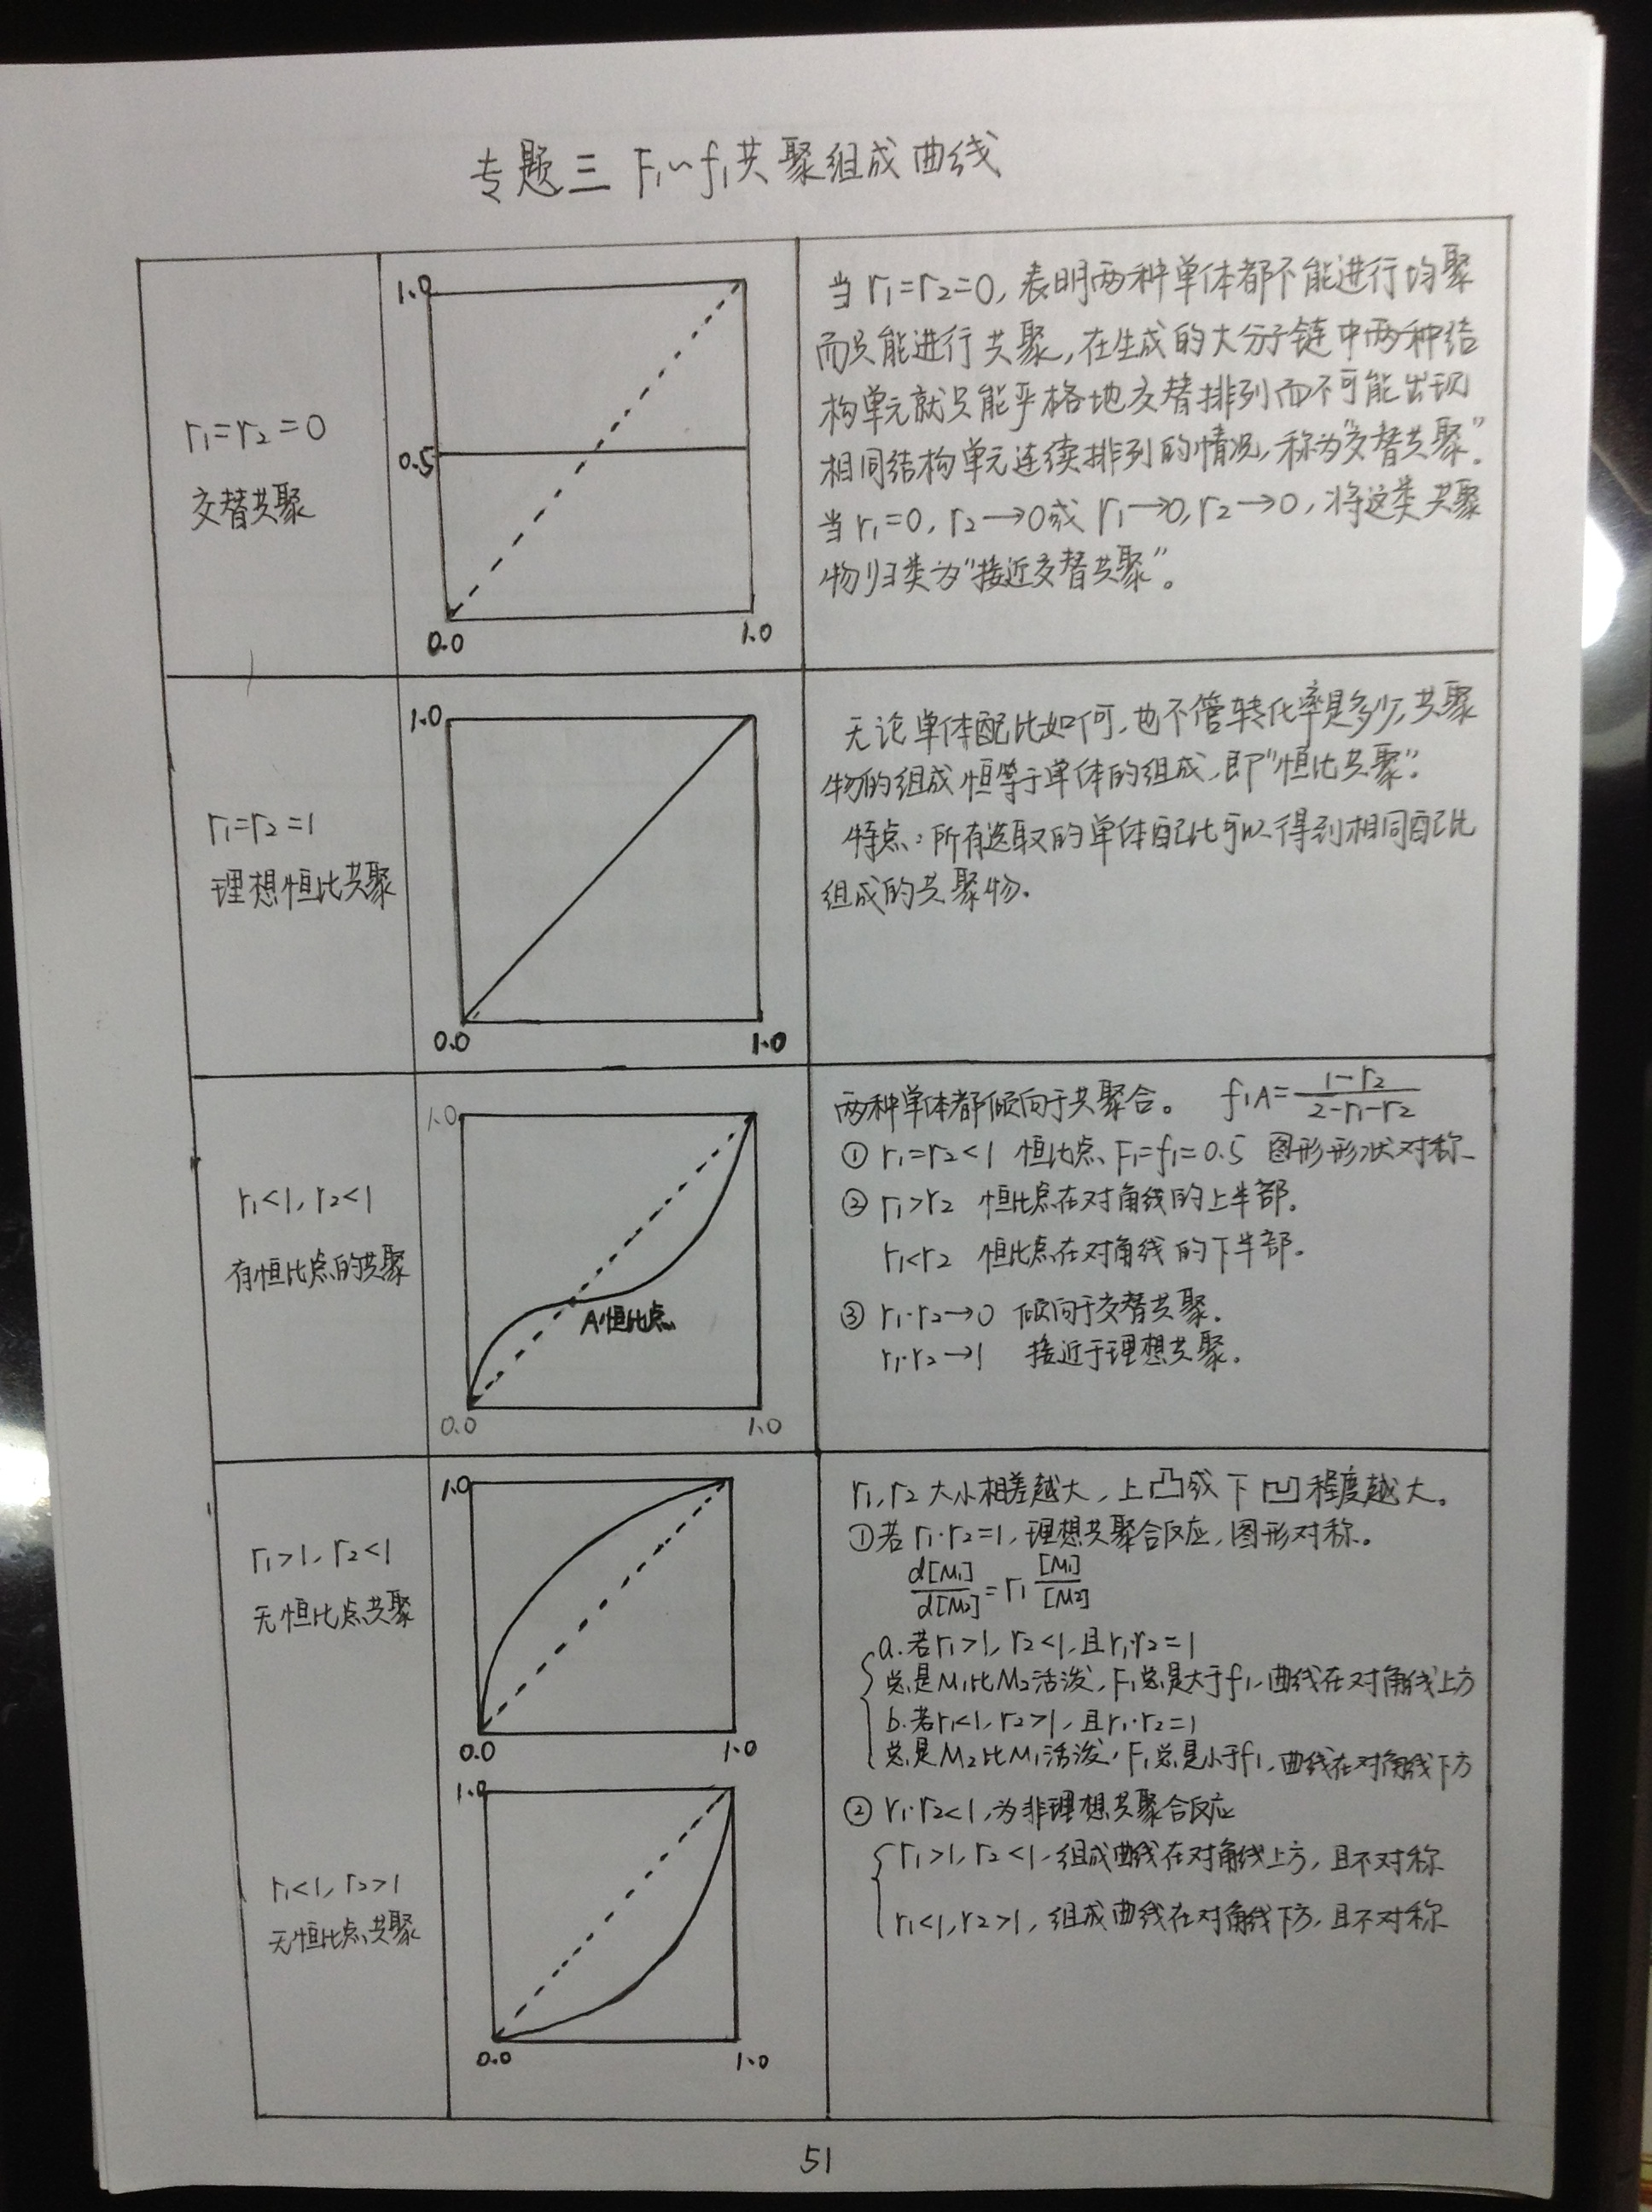 专题三 F₁~f₁共聚组成曲线
r₁=r₂=0
交替共聚
1.0
0.5
0.0
1.0
当 r₁=r₂=0, 表明两种单体都不能进行均聚
而只能进行共聚,在生成的大分子链中两种结
构单元就只能严格地交替排列而不可能出现
相同结构单元连续排列的情况,称为"交替共聚"。
当 r₁=0, r₂→0或 r₁→0, r₂→0, 将这类共聚
物归类为"接近交替共聚"。
r₁=r₂=1
理想恒比共聚
1.0
0.0
1.0
无论单体配比如何,也不管转化率是多少,共聚
物的组成恒等于单体的组成,即"恒比共聚"。
特点:所有选取的单体配比可以得到相同配比
组成的共聚物.
r₁<1, r₂<1
有恒比点的共聚
1.0
A恒比点
0.0
1.0
两种单体都倾向于共聚合。 f₁A=(1-r₂)/(2-r₁-r₂)
① r₁=r₂<1 恒比点、F₁=f₁=0.5 图形形状对称
② r₁>r₂ 恒比点在对角线的上半部.
r₁<r₂ 恒比点在对角线的下半部.
③ r₁·r₂→0 倾向于交替共聚.
r₁·r₂→1 接近于理想共聚.
r₁>1, r₂<1
无恒比点共聚
1.0
0.0
1.0
r₁<1, r₂>1
无恒比点共聚
1.0
0.0
1.0
r₁, r₂ 大小相差越大, 上凸或下凹程度越大。
①若 r₁·r₂=1, 理想共聚合反应, 图形对称。
d[M₁]/d[M₂]=r₁[M₁]/[M₂]
a.若r₁>1, r₂<1,且r₁·r₂=1
总是M₁比M₂活泼, F₁总是大于f₁,曲线在对角线上方
b.若r₁<1, r₂>1, 且r₁·r₂=1
总是M₂比M₁活泼, F₁总是小于f₁,曲线在对角线下方
② r₁·r₂<1,为非理想共聚合反应
r₁>1, r₂<1,组成曲线在对角线上方, 且不对称
r₁<1, r₂>1, 组成曲线在对角线下方, 且不对称
51